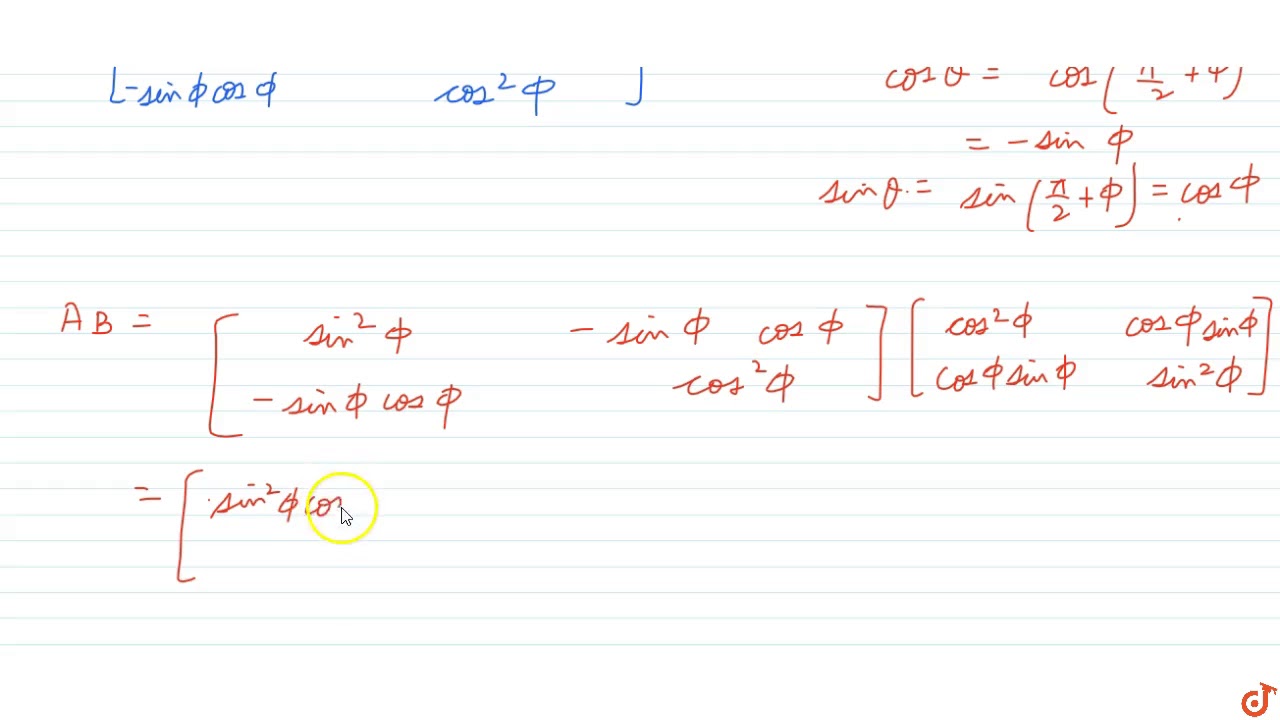 [-sin φ cos φ cos² φ ]
cos θ = cos(π/2 + φ)
= - sin φ
sin θ. = sin(π/2 + φ) = cos φ
AB = [ sin² φ - sin φ cos φ ] [ cos² φ cos φ sin φ ]
- sin φ cos φ cos² φ cos φ sin φ sin² φ
= [ sin² φ cos